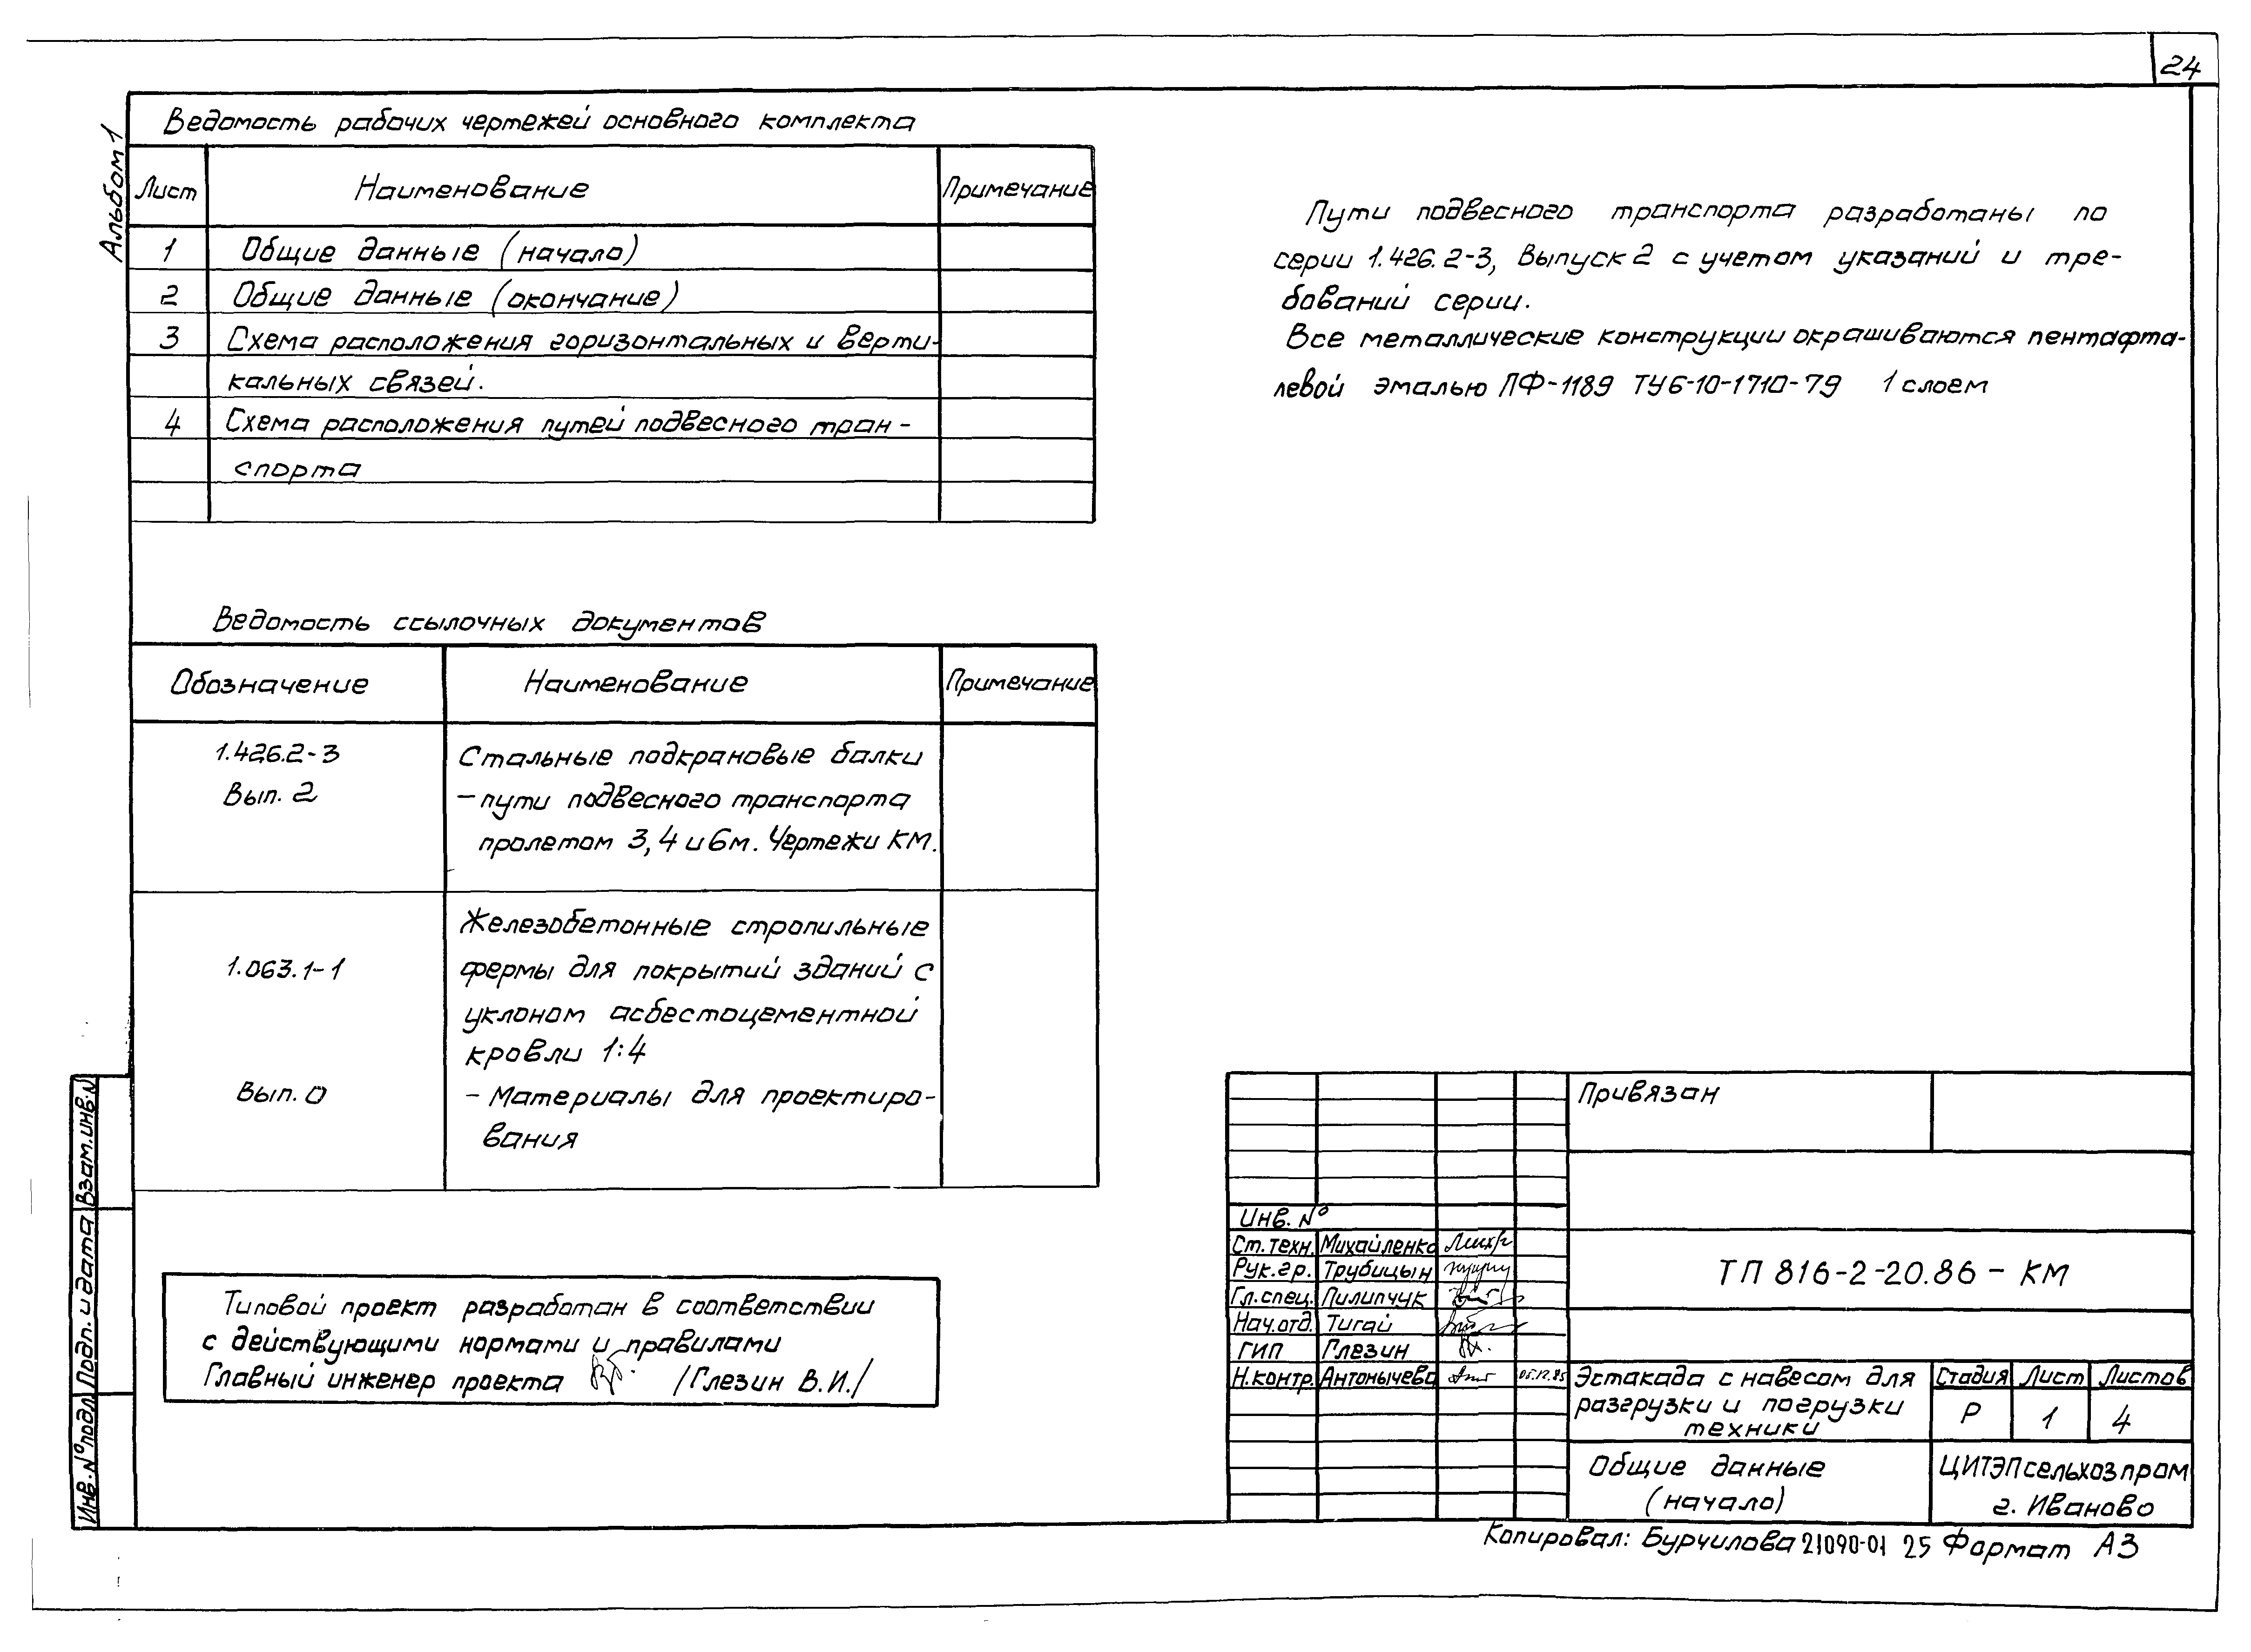 24
Альбом 1
Ведомость рабочих чертежей основного комплекта
Лист Наименование Примечание
1 Общие данные (начало)
2 Общие данные (окончание)
3 Схема расположения горизонтальных и верти-
кальных связей.
4 Схема расположения путей подвесного тран-
спорта
Пути подвесного транспорта разработаны по
серии 1.426.2-3, Выпуск 2 с учетом указаний и тре-
бований серии.
Все металлические конструкции окрашиваются пентафта-
левой эмалью ПФ-1189 ТУ6-10-1710-79 1 слоем
Ведомость ссылочных документов
Обозначение Наименование Примечание
1.426.2-3 Стальные подкрановые балки
Вып. 2 - пути подвесного транспорта
пролетом 3, 4 и 6м. Чертежи КМ.
Железобетонные стропильные
1.063.1-1 фермы для покрытий зданий с
уклоном асбестоцементной
кровли 1:4
Вып. 0 - Материалы для проектиро-
вания
Типовой проект разработан в соответствии
с действующими нормами и правилами
Главный инженер проекта /Глезин В.И./
Взам. инв. N
Подп. и дата
Инв. N° подл
Привязан
Инв. N°
Ст. техн. Михайленко
Рук. гр. Трубицын
Гл. спец. Пилипчук
Нач. отд. Тигай
ГИП Глезин
Н. контр. Антонычева 05.12.85
ТП 816-2-20.86 - КМ
Эстакада с навесом для
разгрузки и погрузки
техники
Стадия Лист Листов
Р 1 4
Общие данные
(начало)
ЦИТЭПсельхозпром
г. Иваново
Копировал: Бурчилова 21090-01 25 Формат А3